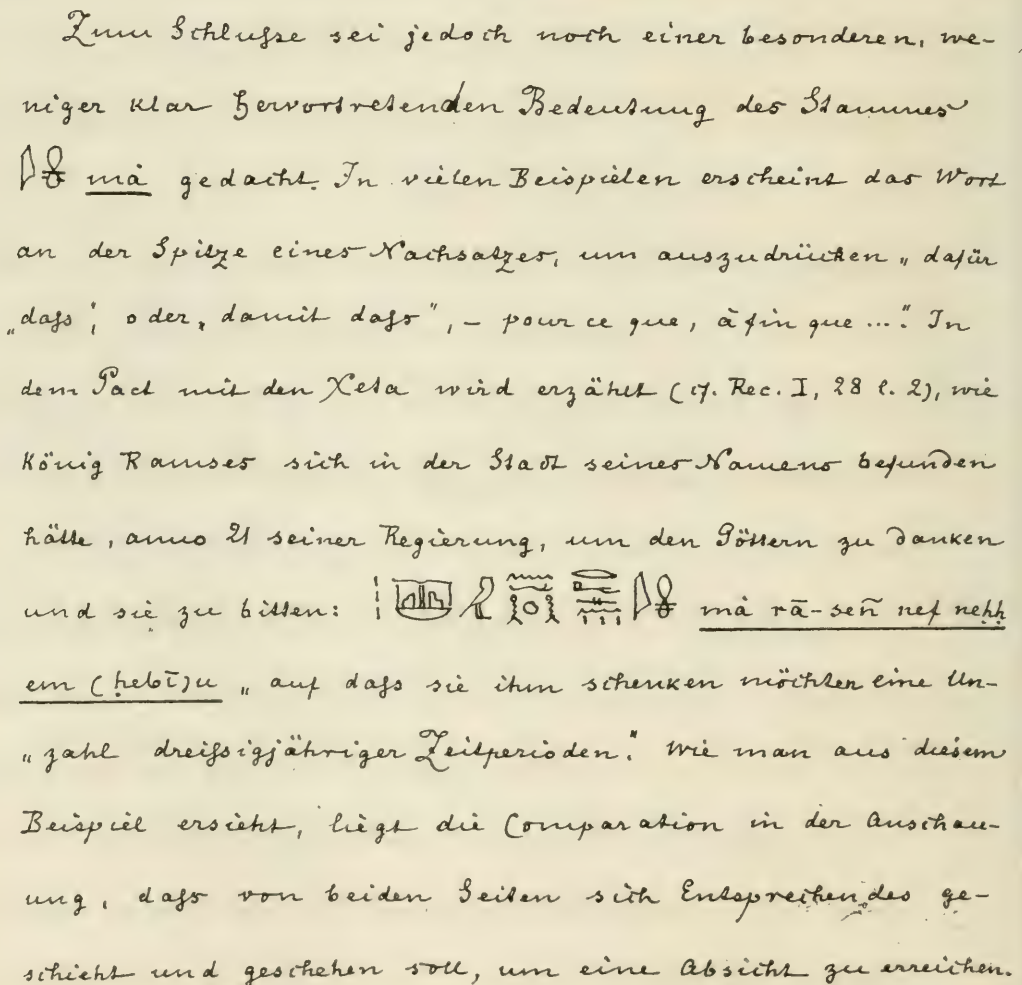 Zum Schluſse sei jedoch noch einer besonderen, we-
niger klar hervortretenden Bedeutung des Stammes
må gedacht. In vielen Beispielen erscheint das Wort
an der Spitze eines Nachsatzes, um auszudrücken „dafür
„daſs“, oder „damit daſs“, – pour ce que, àfin que ...“ In
dem Pact mit den Xeta wird erzählt (cf. Rec. I, 28 l. 2), wie
König Ramses sich in der Stadt seines Namens befunden
hätte, anno 21 seiner Regierung, um den Göttern zu danken
und sie zu bitten: må rā-señ nef neḥḥ
em (ḥebī)u „auf daſs sie ihm schenken möchten eine Un-
„zahl dreiſsigjähriger Zeitperioden.“ Wie man aus diesem
Beispiel ersieht, liegt die Comparation in der Anschau-
ung, daſs von beiden Seiten sich Entsprechendes ge-
schieht und geschehen soll, um eine Absicht zu erreichen.